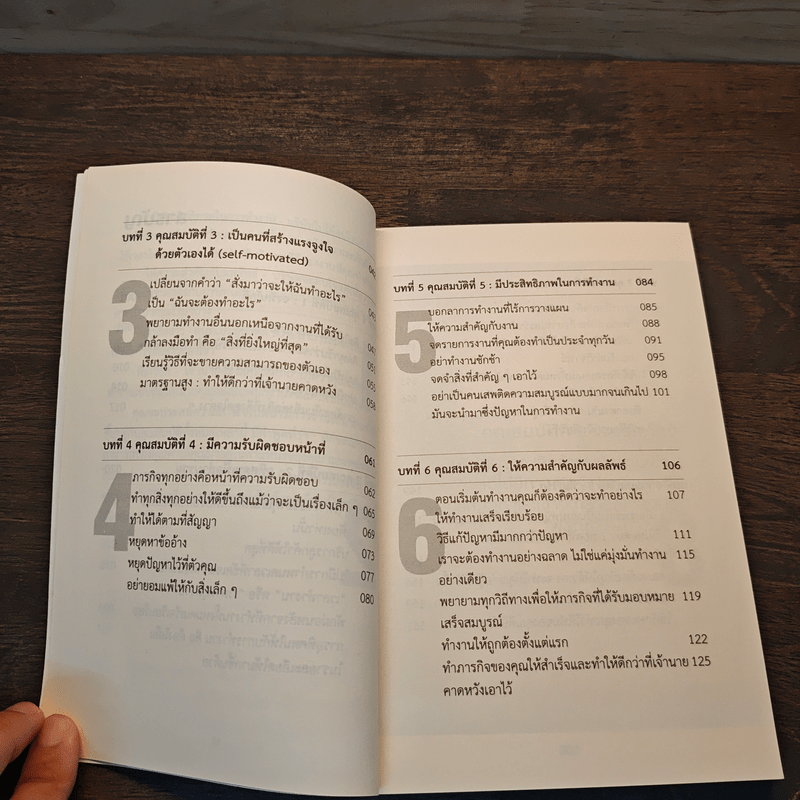 บทที่ 3 คุณสมบัติที่ 3 : เป็นคนที่สร้างแรงจูงใจ
ด้วยตัวเองได้ (self-motivated)
3
เปลี่ยนจากคำว่า “สั่งมาว่าจะให้ฉันทำอะไร”
เป็น “ฉันจะต้องทำอะไร”
พยายามทำงานอื่นนอกเหนือจากงานที่ได้รับ
กล้าลงมือทำ คือ “สิ่งที่ยิ่งใหญ่ที่สุด”
เรียนรู้วิธีที่จะขายความสามารถของตัวเอง
มาตรฐานสูง : ทำให้ดีกว่าที่เจ้านายคาดหวัง 058
บทที่ 4 คุณสมบัติที่ 4 : มีความรับผิดชอบหน้าที่ 061
4
ภารกิจทุกอย่างคือหน้าที่ความรับผิดชอบ 062
ทำทุกสิ่งทุกอย่างให้ดีขึ้นถึงแม้ว่าจะเป็นเรื่องเล็ก ๆ 065
ทำให้ได้ตามที่สัญญา 069
หยุดหาข้ออ้าง 073
หยุดปัญหาไว้ที่ตัวคุณ 077
อย่ายอมแพ้ให้กับสิ่งเล็ก ๆ 080
บทที่ 5 คุณสมบัติที่ 5 : มีประสิทธิภาพในการทำงาน 084
5
บอกลาการทำงานที่ไร้การวางแผน 085
ให้ความสำคัญกับงาน 088
จดรายการงานที่คุณต้องทำเป็นประจำทุกวัน 091
อย่าทำงานชักช้า 095
จดจำสิ่งที่สำคัญ ๆ เอาไว้ 098
อย่าเป็นคนเสพติดความสมบูรณ์แบบมากจนเกินไป 101
มันจะนำมาซึ่งปัญหาในการทำงาน
บทที่ 6 คุณสมบัติที่ 6 : ให้ความสำคัญกับผลลัพธ์ 106
6
ตอนเริ่มต้นทำงานคุณก็ต้องคิดว่าจะทำอย่างไร 107
ให้ทำงานเสร็จเรียบร้อย
วิธีแก้ปัญหามีมากกว่าปัญหา 111
เราจะต้องทำงานอย่างฉลาด ไม่ใช่แค่มุ่งมั่นทำงาน 115
อย่างเดียว
พยายามทุกวิถีทางเพื่อให้ภารกิจที่ได้รับมอบหมาย 119
เสร็จสมบูรณ์
ทำงานให้ถูกต้องตั้งแต่แรก 122
ทำภารกิจของคุณให้สำเร็จและทำให้ดีกว่าที่เจ้านาย 125
คาดหวังเอาไว้